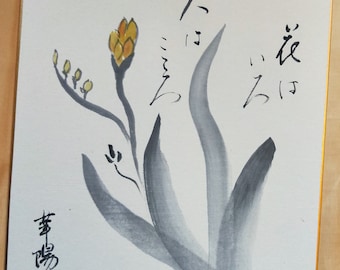 花はいろ
人はこころ
華陽